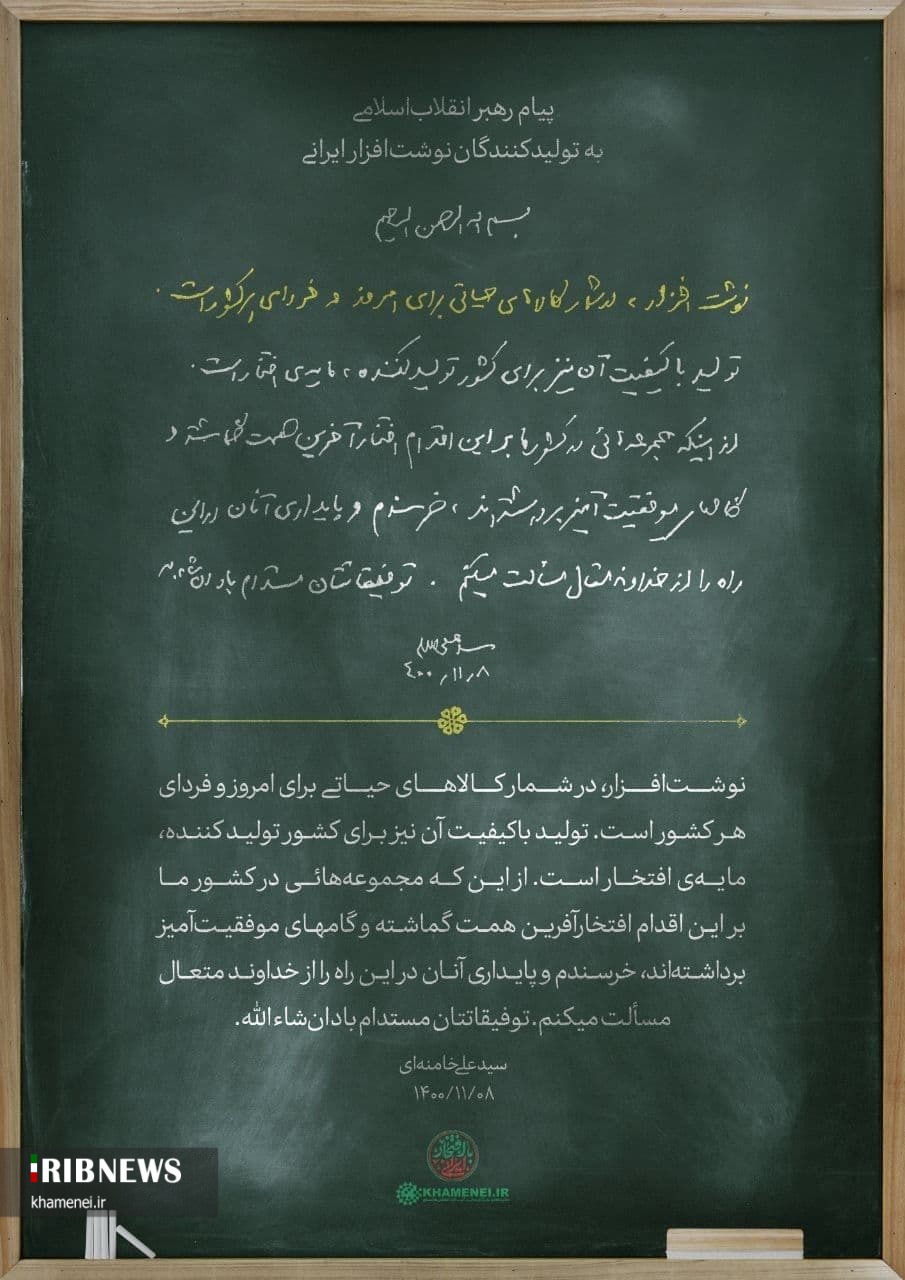 پیام رهبر انقلاب اسلامی
به تولیدکنندگان نوشت‌افزار ایرانی
بسم الله الرحمن الرحیم
نوشت افزار، در شمار کالاهای حیاتی برای امروز و فردای هر کشور است.
تولید با کیفیت آن نیز برای کشور تولید کننده، مایه‌ی افتخار است.
از اینکه مجموعه‌هائی در کشور ما بر این اقدام افتخارآفرین همت گماشته و
گامهای موفقیت آمیز برداشته‌اند، خرسندم و پایداری آنان در این
راه را از خداوند متعال مسألت میکنم. توفیقاتتان مستدام باد ان‌شاءالله
سیدعلی خامنه‌ای
۴۰۰٫۱۱٫۸
نوشت‌افزار، در شمار کالاهای حیاتی برای امروز و فردای
هر کشور است. تولید باکیفیت آن نیز برای کشور تولید کننده،
مایه‌ی افتخار است. از این که مجموعه‌هائی در کشور ما
بر این اقدام افتخارآفرین همت گماشته و گامهای موفقیت‌آمیز
برداشته‌اند، خرسندم و پایداری آنان در این راه را از خداوند متعال
مسألت میکنم. توفیقاتتان مستدام باد ان‌شاءالله.
سیدعلی خامنه‌ای
۱۴۰۰/۱۱/۰۸
با افتخار ایرانی
KHAMENEI.IR
IRIBNEWS
khamenei.ir